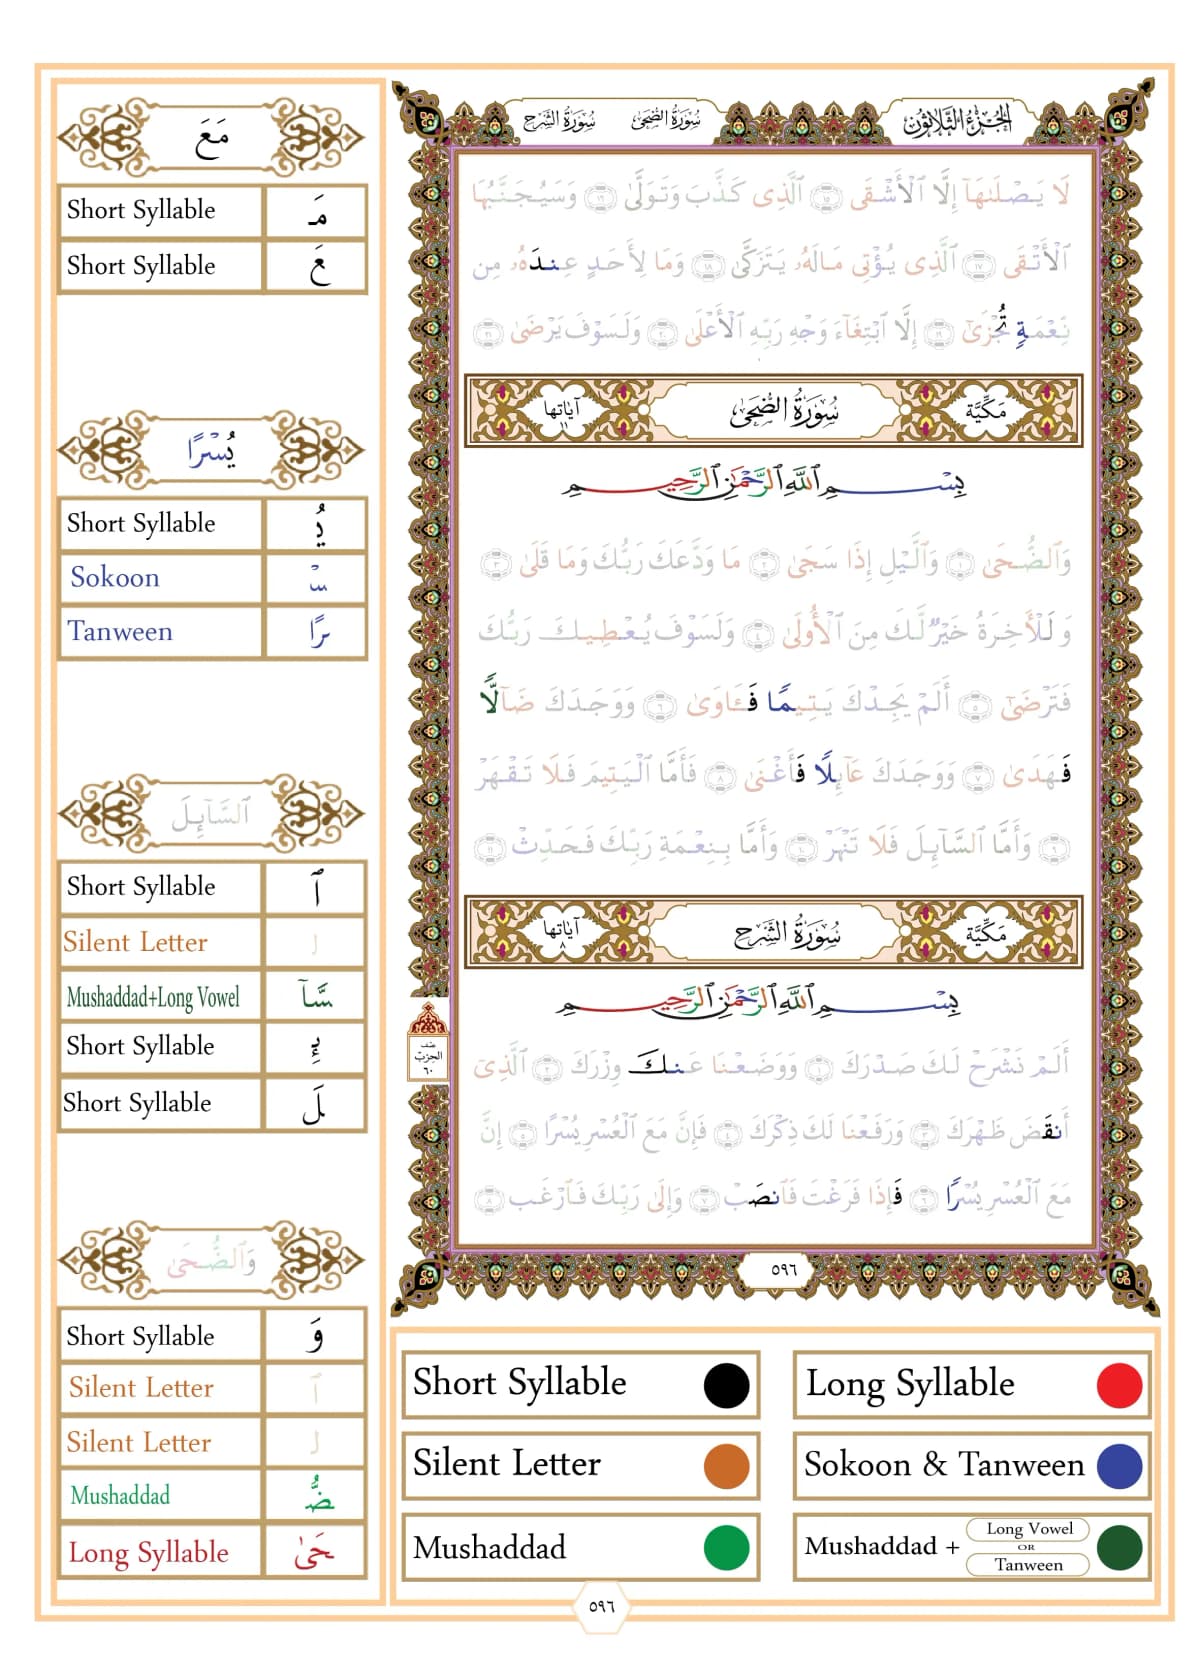 الجزء الثلاثون
سورة الضحى
سورة الشرح
لَا يَصْلَىٰهَآ إِلَّا ٱلْأَشْقَى ١٥ ٱلَّذِى كَذَّبَ وَتَوَلَّىٰ ١٦ وَسَيُجَنَّبُهَا
ٱلْأَتْقَى ١٧ ٱلَّذِى يُؤْتِى مَالَهُۥ يَتَزَكَّىٰ ١٨ وَمَا لِأَحَدٍ عِندَهُۥ مِن
نِّعْمَةٍ تُجْزَىٰٓ ١٩ إِلَّا ٱبْتِغَآءَ وَجْهِ رَبِّهِ ٱلْأَعْلَىٰ ٢٠ وَلَسَوْفَ يَرْضَىٰ ٢١
مَكِّيَّة
سُورَةُ الضُّحَىٰ
آيَاتها ١١
بِسْمِ ٱللَّهِ ٱلرَّحْمَٰنِ ٱلرَّحِيمِ
وَٱلضُّحَىٰ ١ وَٱلَّيْلِ إِذَا سَجَىٰ ٢ مَا وَدَّعَكَ رَبُّكَ وَمَا قَلَىٰ ٣
وَلَلْأَخِرَةُ خَيْرٌ لَّكَ مِنَ ٱلْأُولَىٰ ٤ وَلَسَوْفَ يُعْطِيكَ رَبُّكَ
فَتَرْضَىٰٓ ٥ أَلَمْ يَجِدْكَ يَتِيمًا فَـَٔاوَىٰ ٦ وَوَجَدَكَ ضَآلًّا
فَهَدَىٰ ٧ وَوَجَدَكَ عَآئِلًا فَأَغْنَىٰ ٨ فَأَمَّا ٱلْيَتِيمَ فَلَا تَقْهَرْ
٩ وَأَمَّا ٱلسَّآئِلَ فَلَا تَنْهَرْ ١٠ وَأَمَّا بِنِعْمَةِ رَبِّكَ فَحَدِّثْ ١١
مَكِّيَّة
سُورَةُ الشَّرْح
آيَاتها ٨
بِسْمِ ٱللَّهِ ٱلرَّحْمَٰنِ ٱلرَّحِيمِ
أَلَمْ نَشْرَحْ لَكَ صَدْرَكَ ١ وَوَضَعْنَا عَنكَ وِزْرَكَ ٢ ٱلَّذِىٓ
أَنقَضَ ظَهْرَكَ ٣ وَرَفَعْنَا لَكَ ذِكْرَكَ ٤ فَإِنَّ مَعَ ٱلْعُسْرِ يُسْرًا ٥ إِنَّ
مَعَ ٱلْعُسْرِ يُسْرًا ٦ فَإِذَا فَرَغْتَ فَٱنصَبْ ٧ وَإِلَىٰ رَبِّكَ فَٱرْغَب ٨
نصف
الحزب
٦٠
٥٩٦
مَعَ
Short Syllable مَـ
Short Syllable عَ
يُسْرًا
Short Syllable يُـ
Sokoon سْـ
Tanween ـرًا
ٱلسَّآئِلَ
Short Syllable ٱ
Silent Letter لـ
Mushaddad+Long Vowel سَّآ
Short Syllable ئِـ
Short Syllable لَ
وَٱلضُّحَىٰ
Short Syllable وَ
Silent Letter ٱ
Silent Letter لـ
Mushaddad ضُّـ
Long Syllable حَىٰ
Short Syllable
Long Syllable
Silent Letter
Sokoon & Tanween
Mushaddad
Mushaddad + Long Vowel OR Tanween
٥٩٦